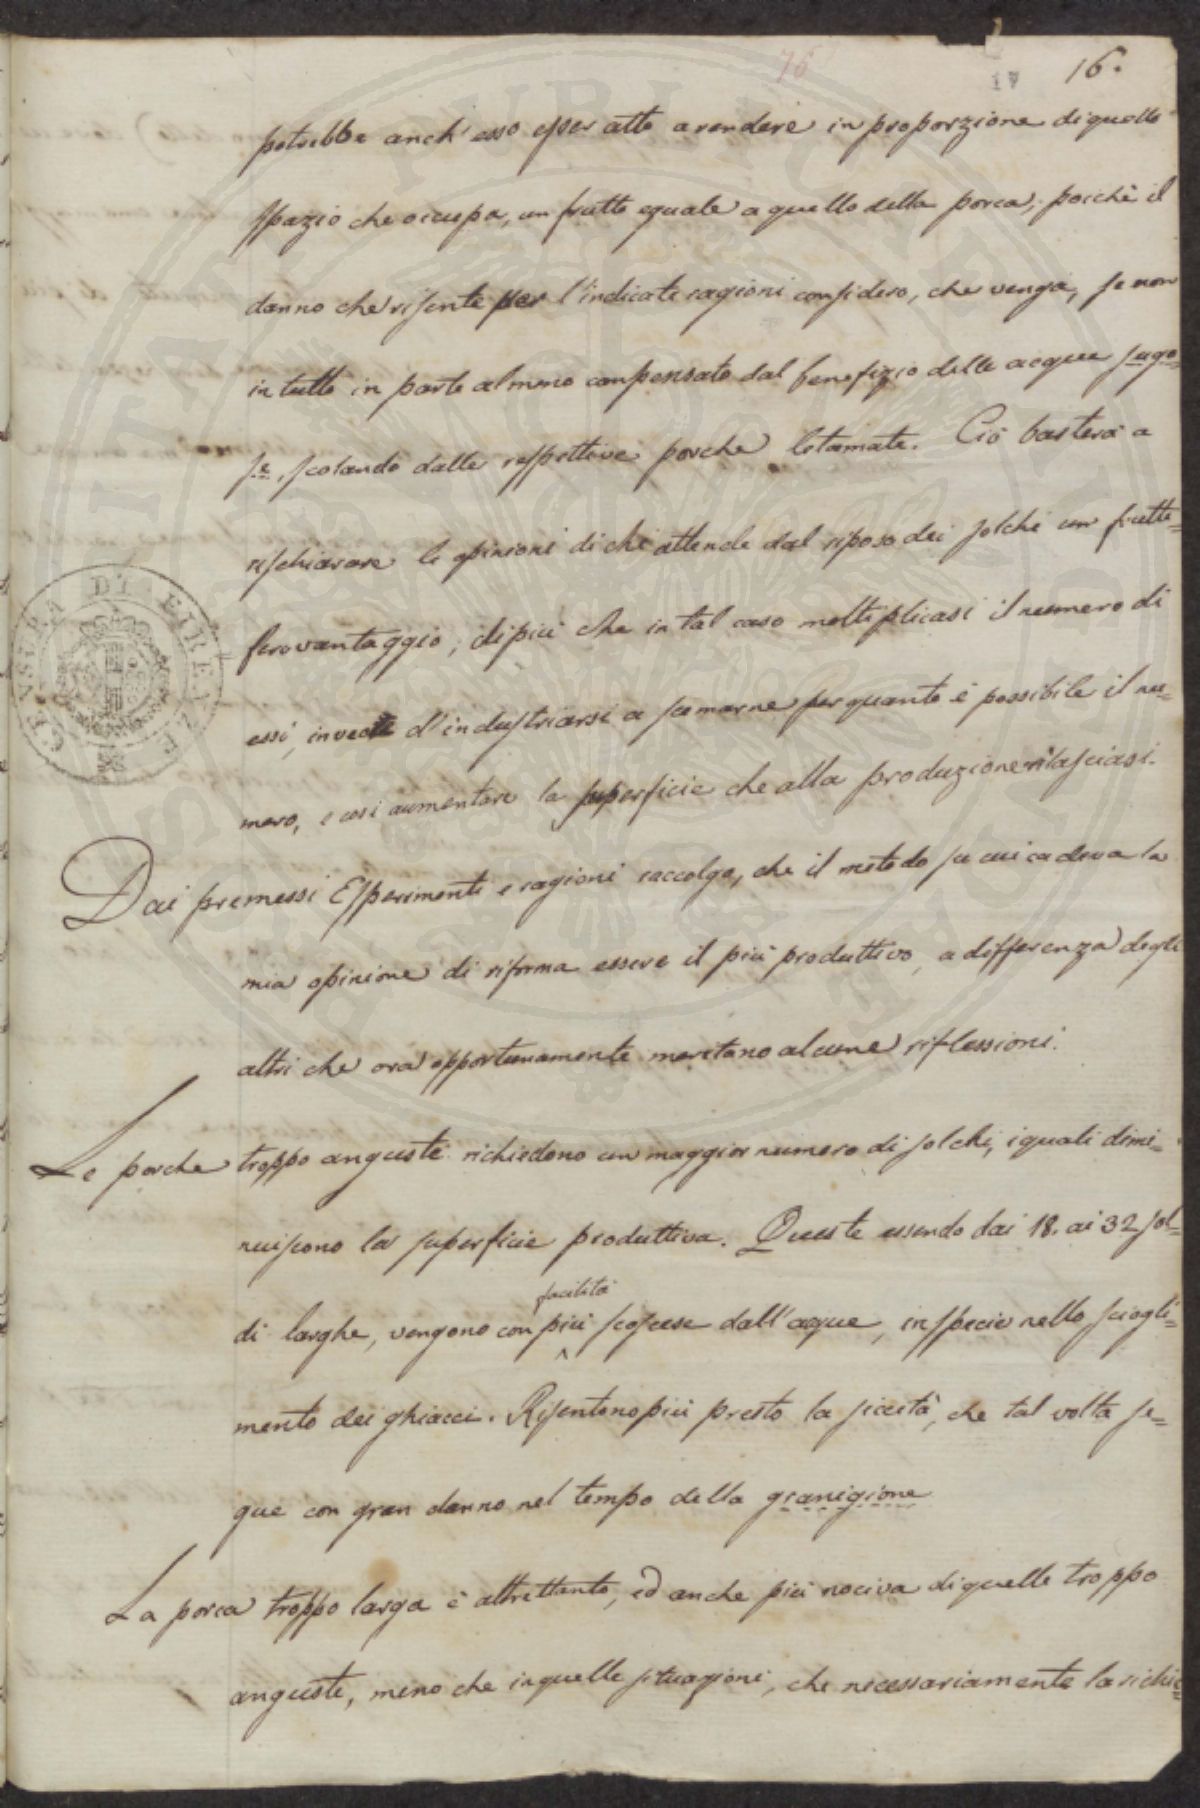 76
17
16.
potrebbe anch'esso esser atto a rendere in proporzione di quello
spazio che occupa, un frutto eguale a quello della porca; poichè il
danno che risente per l'indicate ragioni considero, che venga, se non
in tutto in parte almeno compensato dal benefizio delle acque sugo=
se, scolando dalle respettive porche letamate. Ciò basterà a
rischiarare le opinioni di chi attende dal riposo dei solchi un frutti=
fero vantaggio; di più che in tal caso moltiplicasi il numero di
essi, invece d'industriarsi a scemarne per quanto è possibile il nu=
mero, e così aumentare la superficie che alla produzione rilasciasi.
Dai premessi Esperimenti e ragioni raccolgo, che il metodo su cui cadeva la
mia opinione di riforma essere il più produttivo, a differenza degli
altri che ora opportunamente meritano alcune riflessioni.
Le porche troppo anguste richiedono un maggior numero di solchi, i quali dimi=
nuiscono la superficie produttiva. Queste essendo dai 18. ai 32 sol=
facilità
di larghe, vengono con più scoscese dall'acque, in specie nello sciogli=
mento dei ghiacci. Risentono più presto la siccità, che tal volta se=
gue con gran danno nel tempo della granigione
La porca troppo larga è altrettanto, ed anche più nociva di quelle troppo
anguste, meno che in quelle situazioni, che necessariamente la richie=
DI FIRENZE